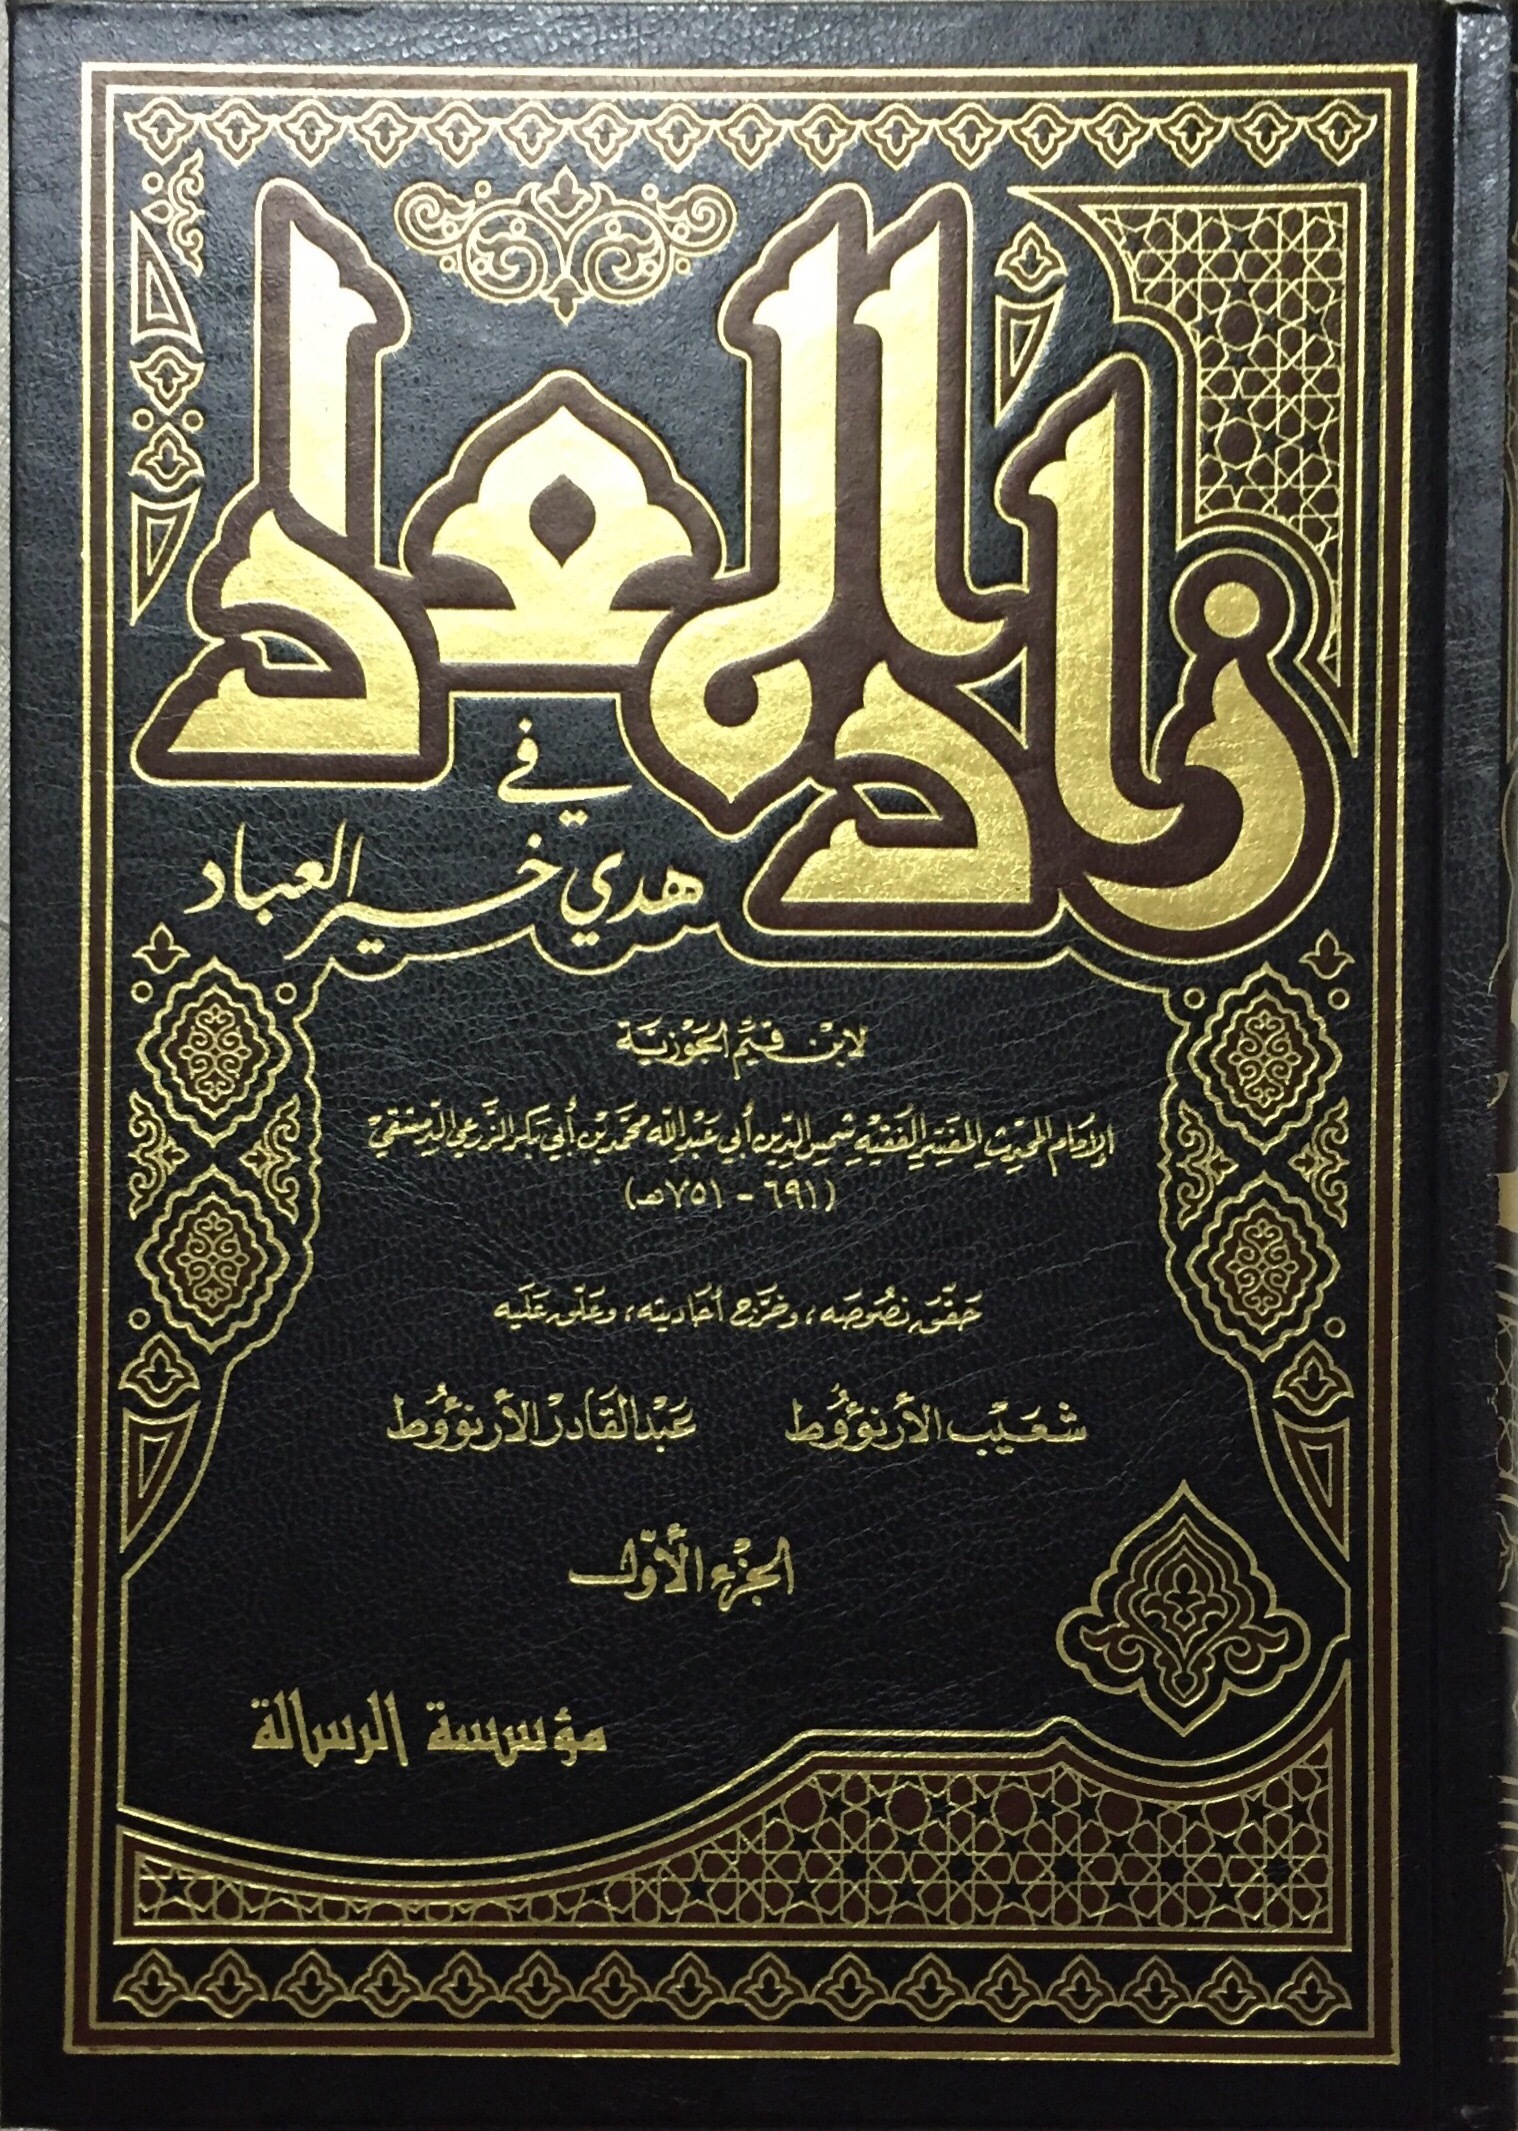 زاد المعاد
في
هدي خير العباد
لابن قيم الجوزية
الإمام المحدث المفسر الفقيه شمس الدين أبي عبد الله محمد بن أبي بكر الزرعي الدمشقي
(٦٩١ - ٧٥١هـ)
حَقّقَ نصُوصَه، وخرّج أحَاديثه، وعَلّق عَلَيه
شعَيْب الأرنؤوُط عَبْد القَادر الأرنؤوُط
الجزء الأوّل
مؤسسة الرسالة